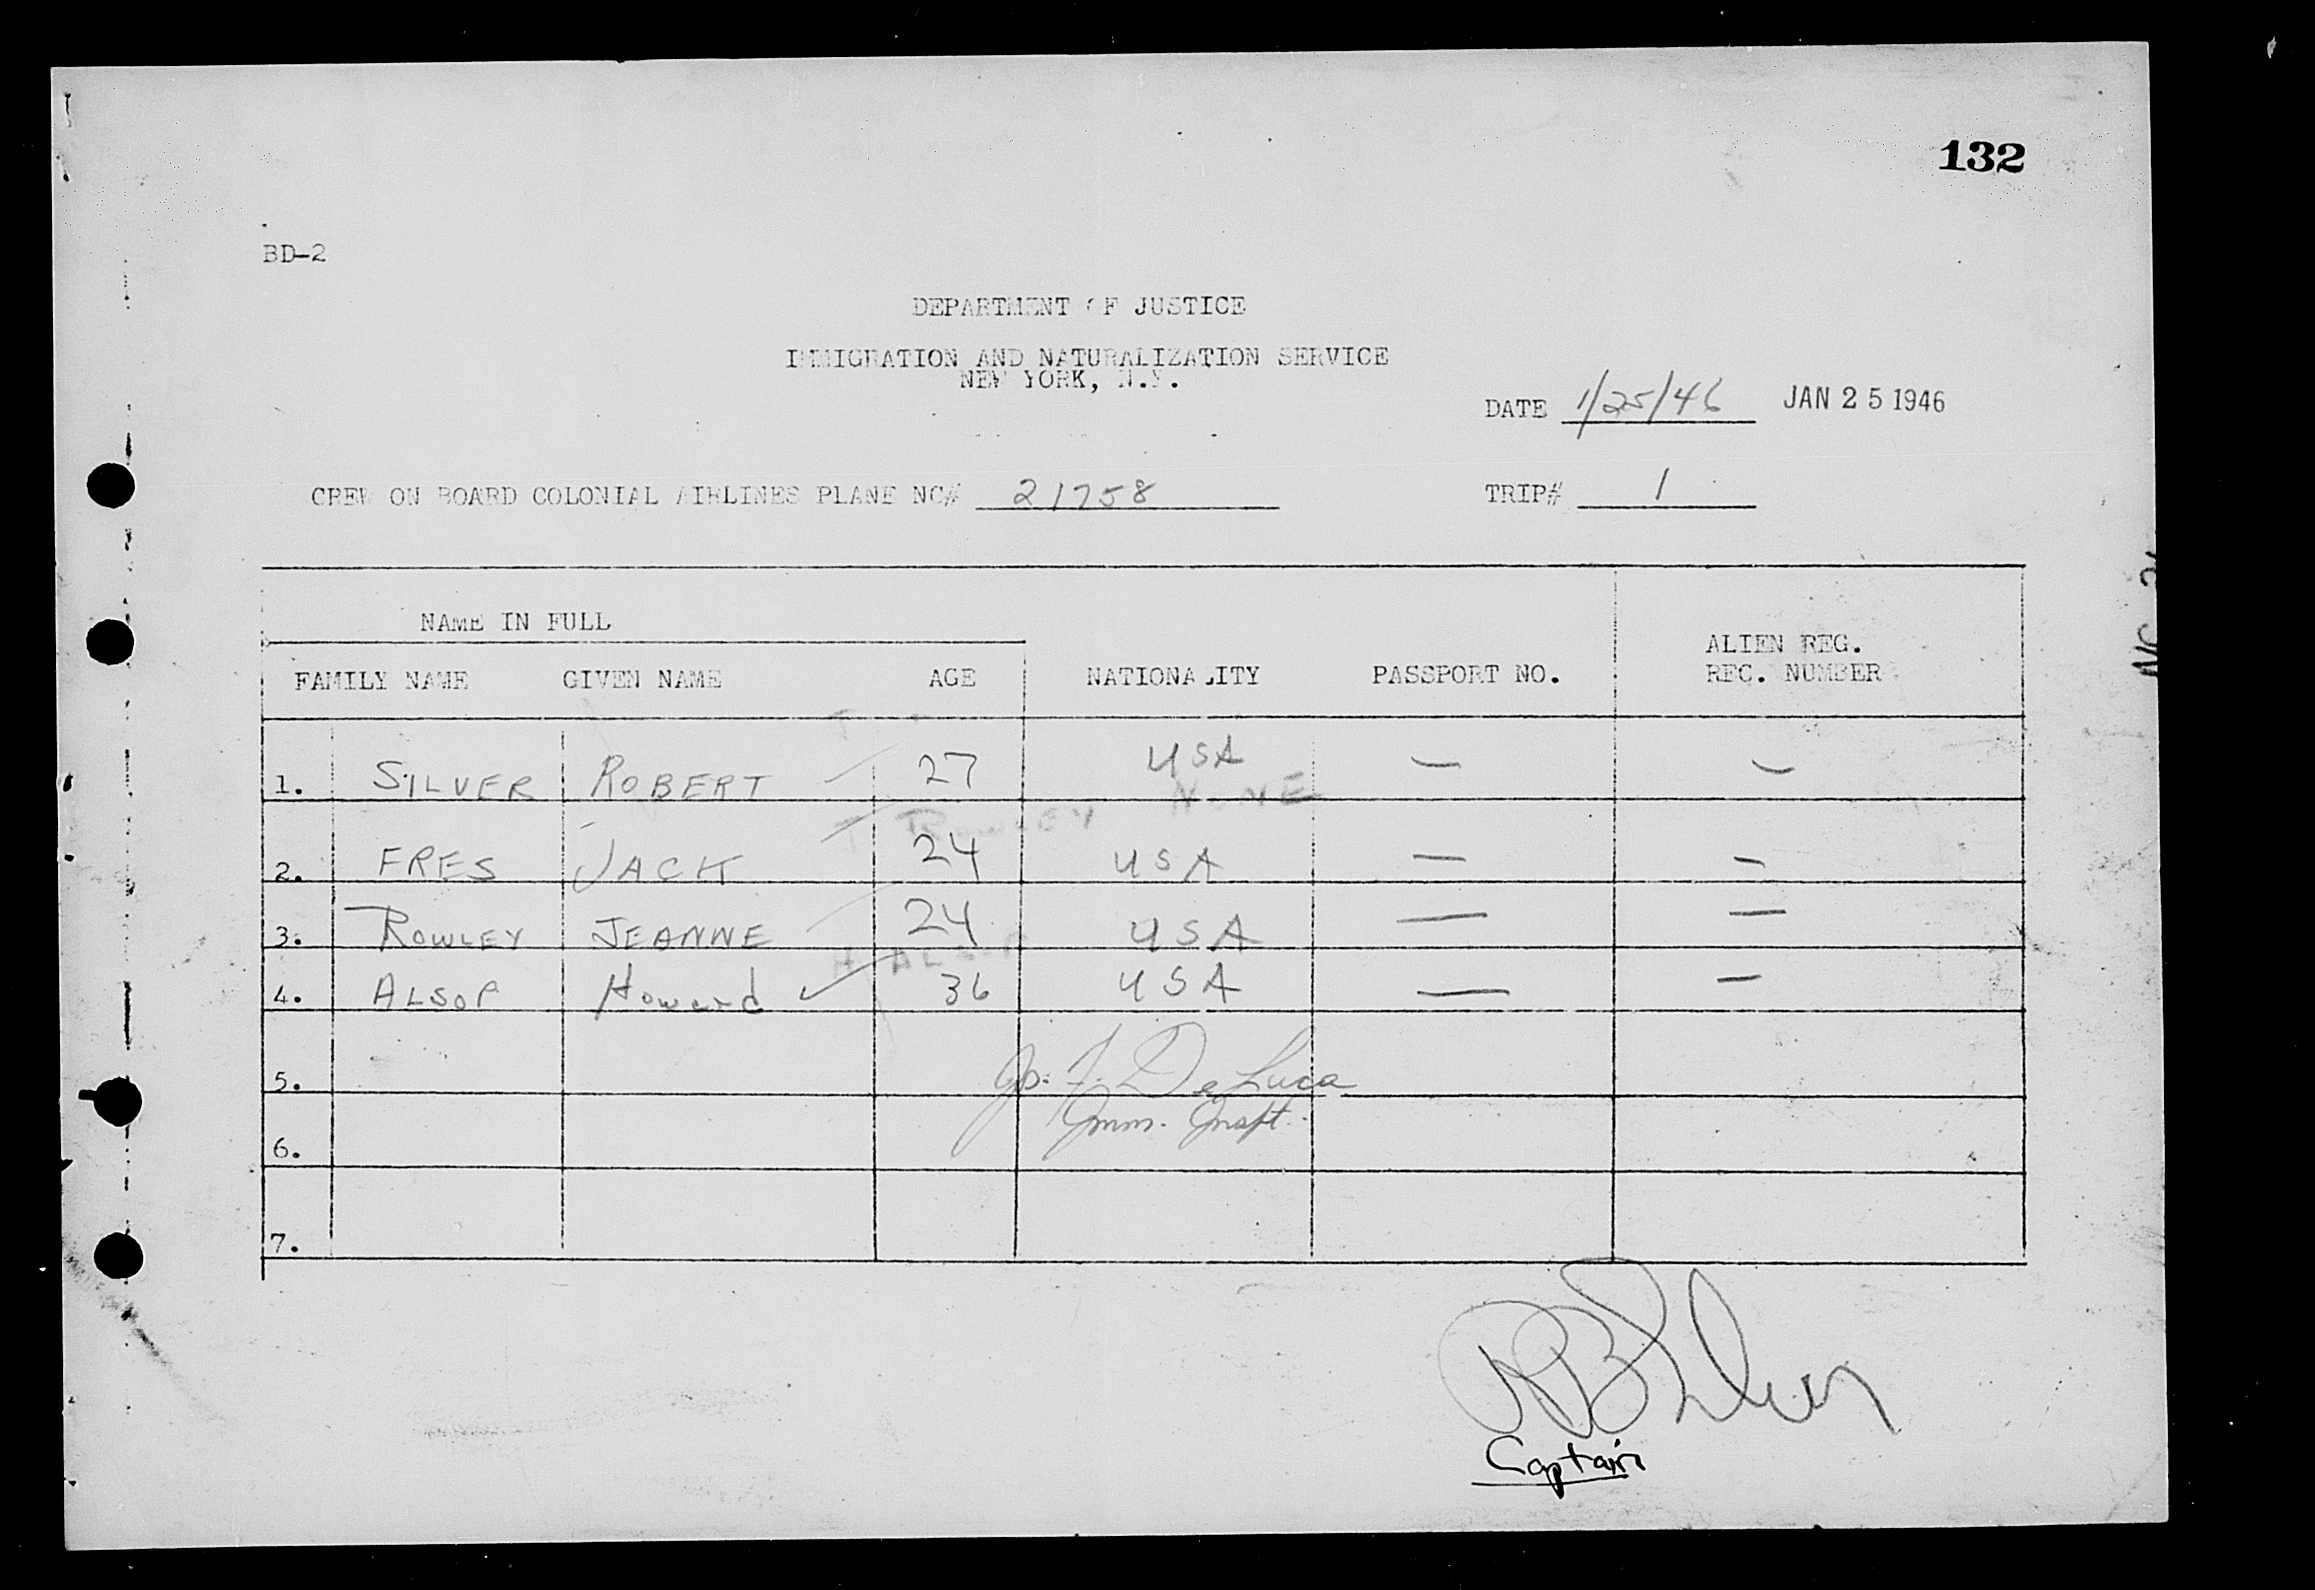 132
BD-2
DEPARTMENT OF JUSTICE
IMMIGRATION AND NATURALIZATION SERVICE
NEW YORK, N.Y.
DATE 1/25/46 JAN 25 1946
CREW ON BOARD COLONIAL AIRLINES PLANE NC# 21758 TRIP# 1
NAME IN FULL
FAMILY NAME GIVEN NAME AGE NATIONALITY PASSPORT NO. ALIEN REG. REC. NUMBER
1. SILVER ROBERT 27 USA — —
NONE
ROWLEY
2. FRES JACK 24 USA — —
3. ROWLEY JEANNE 24 USA — —
H ALSOP
4. ALSOP Howard ✓ 36 USA — —
Jos. F. De Luca
5.
Imm. Inspt.
6.
7.
Captain